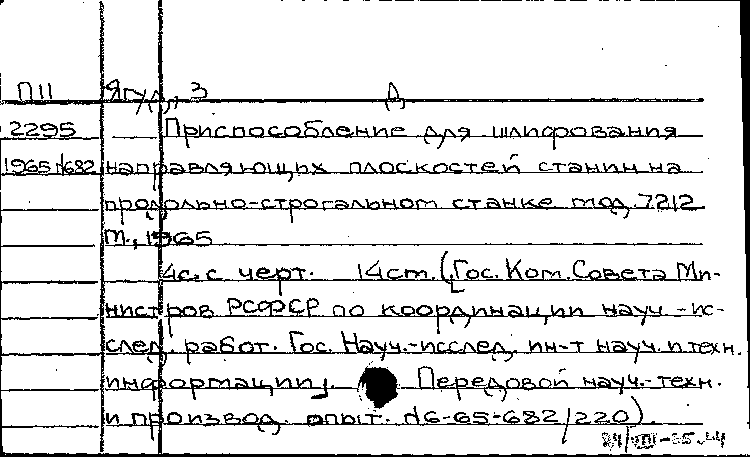 П11 Ягуд, З Д
2295 Приспособление для шлифования
1965 №682 направляющих плоскостей станин на
продольно-строгальном станке мод. 7212
М., 1965
4с. с черт. 14см. (Гос. Ком. Совета Ми-
нистров РСФСР по координации науч.-ис-
след. работ. Гос. Науч.-исслед. ин-т науч. и техн.
информации]. Передовой науч.-техн.
и производ. опыт. №6-65-682/220).